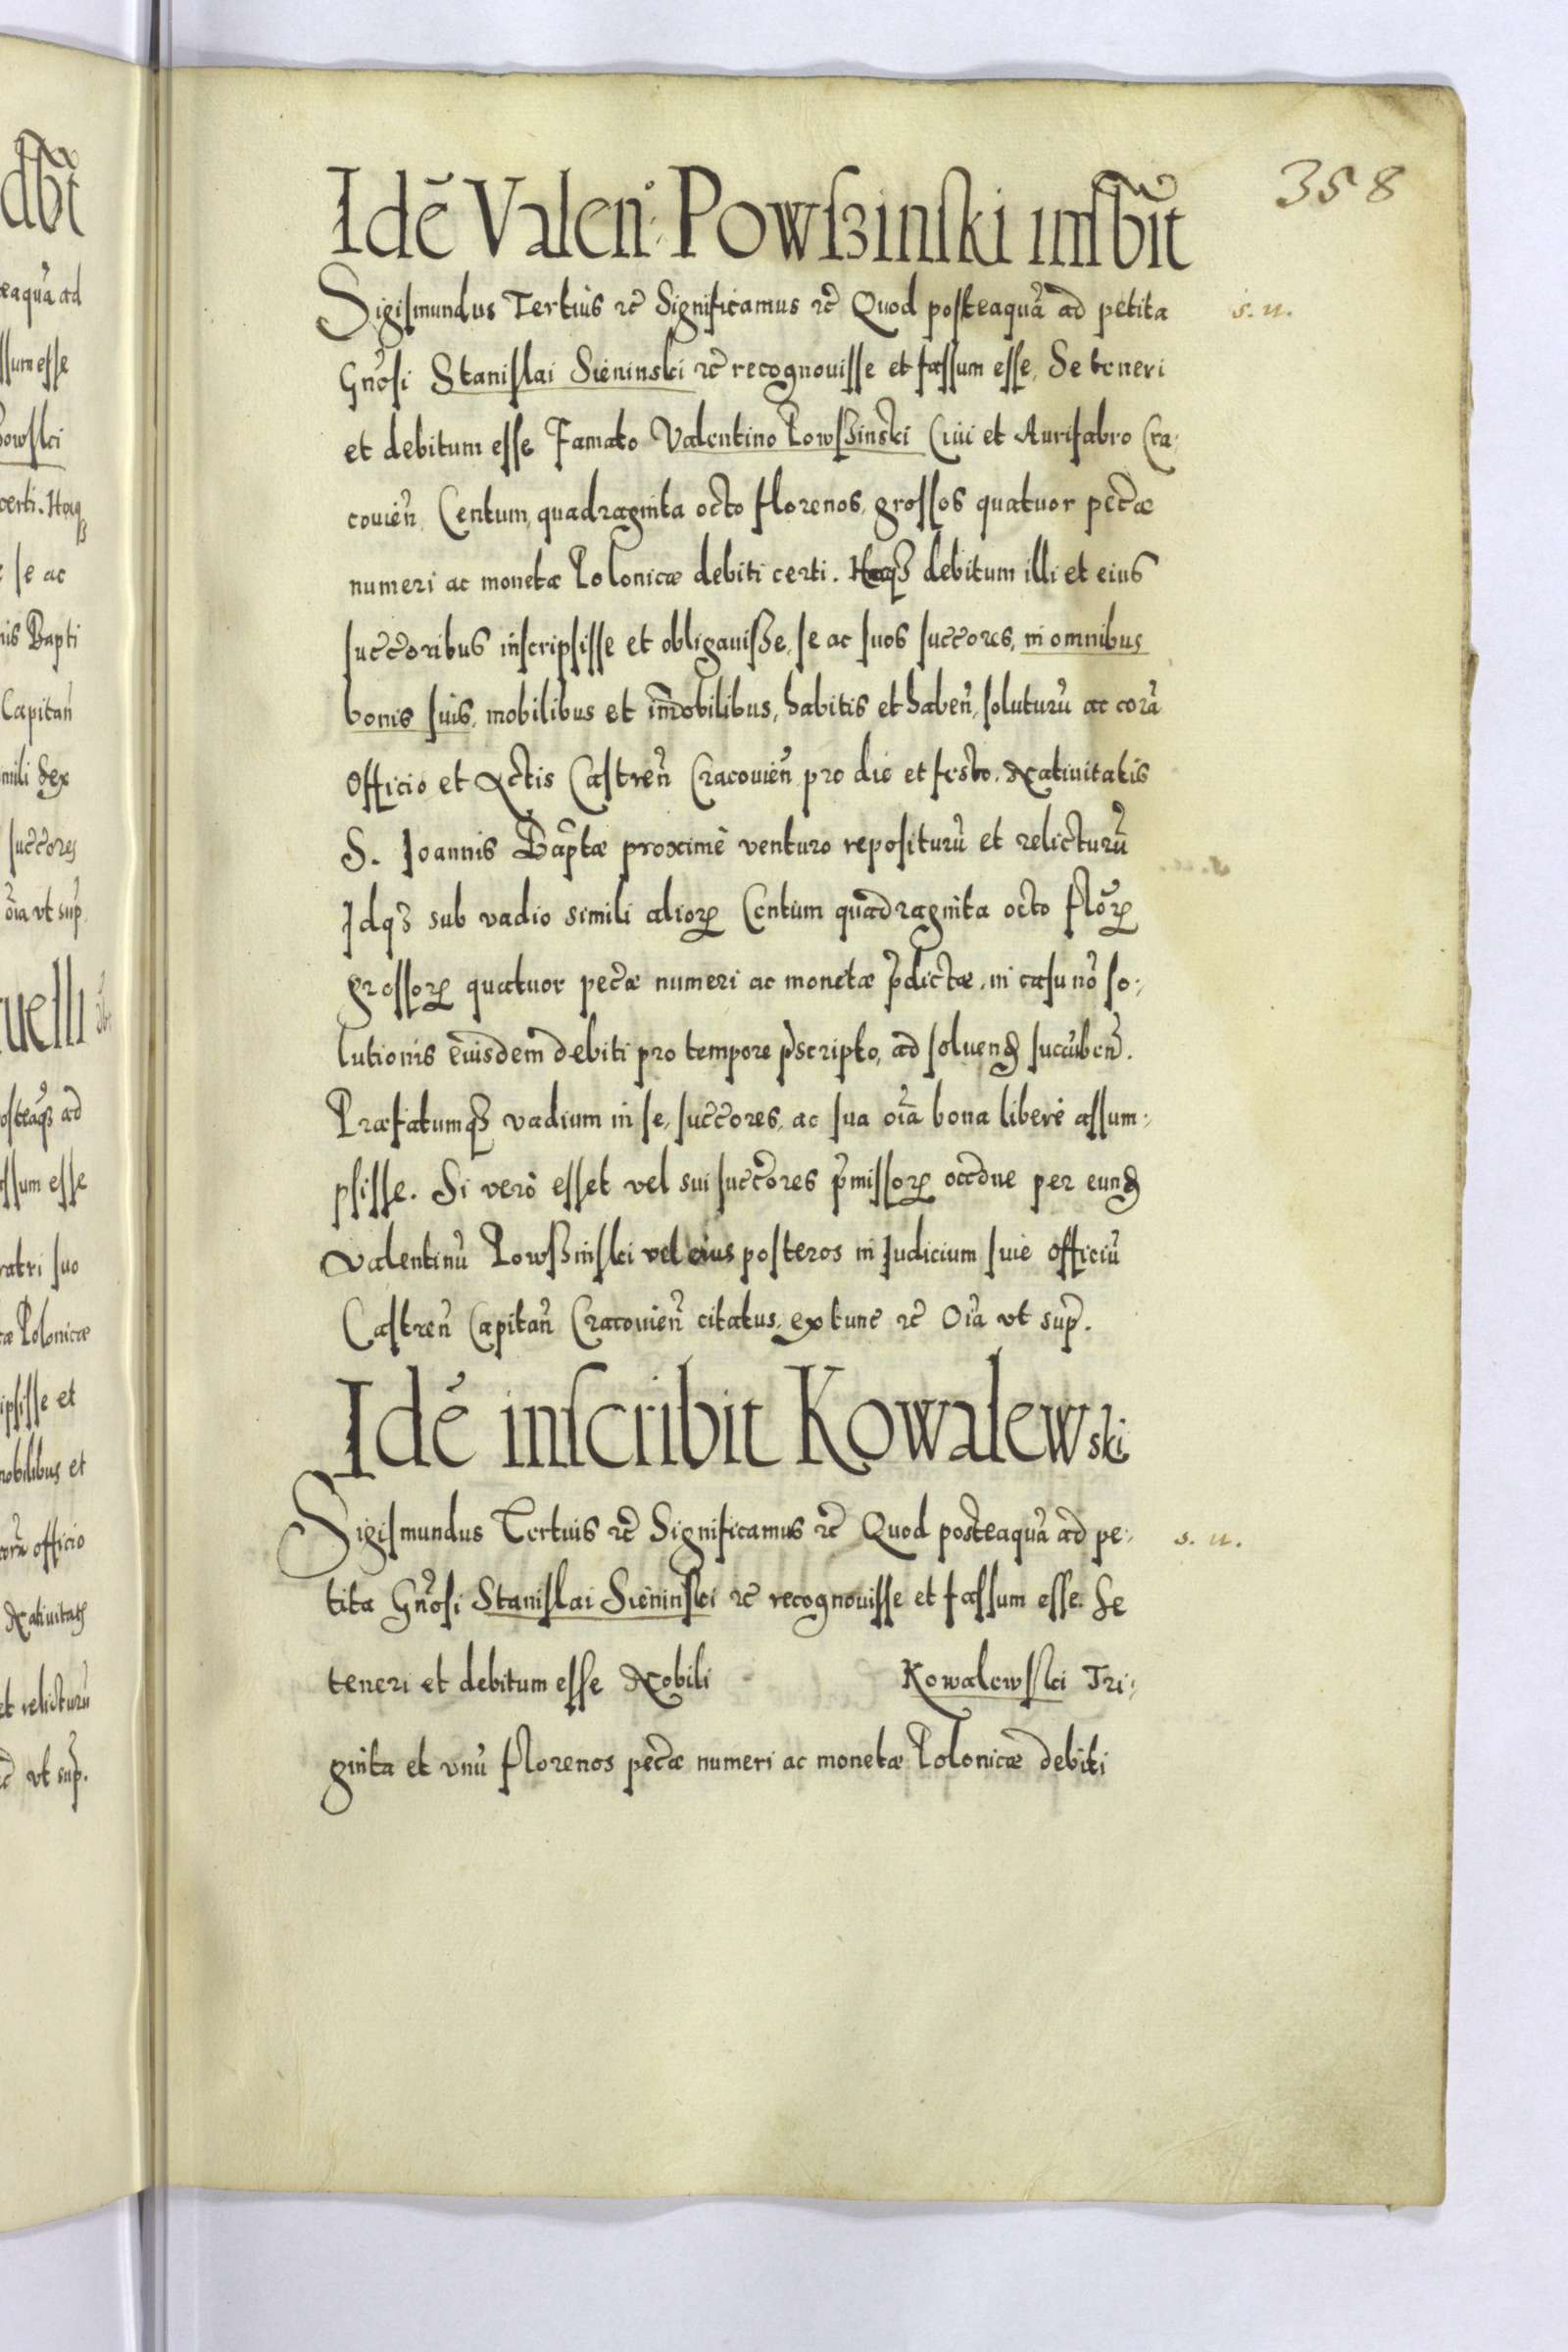 358
Idē Valeñ: Powßinſki inſb̃it
Sigiſmundus Tertius ꝛc̃ Significamus ꝛc̃ Quod poſteaquā ad petita
s. u.
Gn̄oſi Staniſlai Sieninski ꝛc̃ recognouiſſe et faſſum eſſe, Se teneri
et debitum eſſe Famato Valentino Powſzinski Ciui et Aurifabro Cra:
couieñ, Centum, quadraginta octo florenos, groſſos quatuor pec̃æ
numeri ac monetæ Polonicæ debiti certi. Hocqꝫ debitum illi et eius
ſucc̃oribus inſcripſiſſe et obligauiſſe, ſe ac ſuos ſucc̃ores, in omnibus
bonis ſuis, mobilibus et im̃obilibus, habitis et habeñ, ſoluturū ac corā
Officio et Actis Caſtreñ Cracouieñ pro die et feſto. Natiuitatis
S. Joannis Bap̃tæ proximè venturo repoſiturū et relicturū
Idqꝫ sub vadio simili alioꝝ Centum quadraginta octo flõꝝ
groſſoꝝ quatuor pec̃æ numeri ac monetæ p̃dictæ, in caſu nō ſo:
lutionis eiusdem debiti pro tempore p̃scripto, ad ſoluenđ ſuccūbeñ.
Præfatumqꝫ vadium in ſe, ſucc̃ores, ac ſua oīa bona liberè aſſum:
pſiſſe. Si verò eſſet vel sui ſucc̃ores p̃miſſoꝝ occ̃ne per eunđ
Valentinū Powſzinſki vel eius poſteros in Judicium ſuie officiū
Caſtreñ Capitañ Cracouieñ citatus, ex tunc ꝛc̃ Oīa vt sup̃.
Idē inſcribit Kowalewski
Sigiſmundus Tertuis ꝛc̃ Significamus ꝛc̃ Quod posteaquā ad pe:
s. u.
tita Gn̄oſi Staniſlai Sieninſki ꝛc̃ recognouiſſe et faſſum eſſe. Se
teneri et debitum eſſe Nobili Kowalewſki Tri:
ginta et vnū florenos pec̃æ numeri ac monetæ Polonicæ debiti